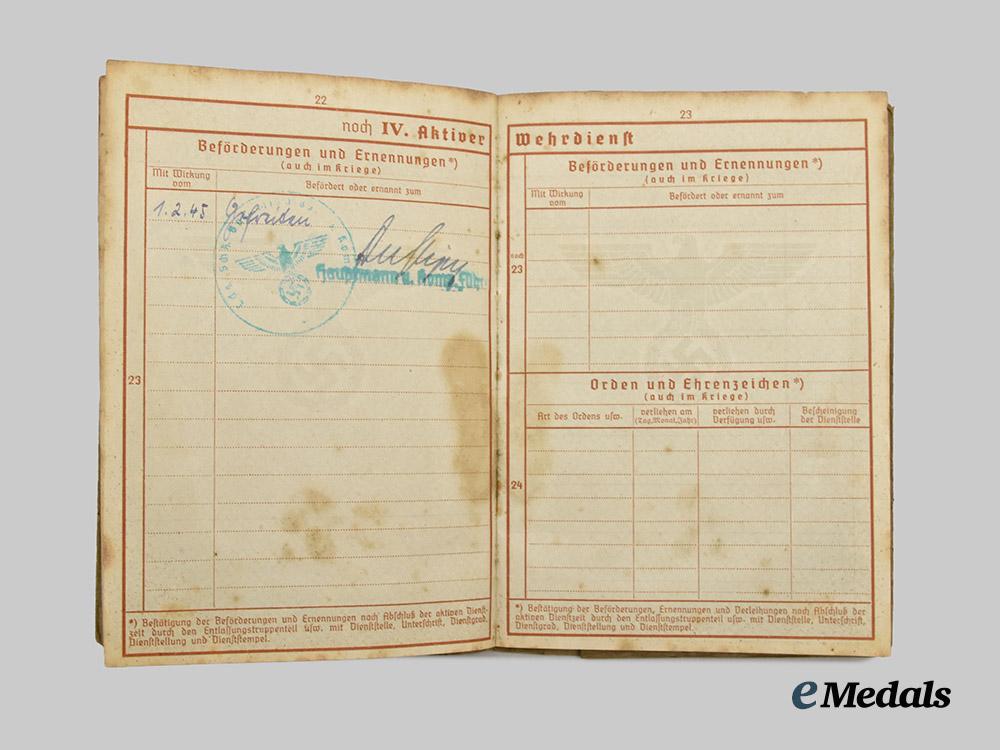 22
noch IV. Aktiver
Beförderungen und Ernennungen*)
(auch im Kriege)
Mit Wirkung vom
Befördert oder ernannt zum
1.2.45 Gefreiten
Hauptmann u. Komp. Führ
23
*) Bestätigung der Beförderungen und Ernennungen nach Abschluß der aktiven Dienst-
zeit durch den Entlassungstruppenteil usw. mit Dienststelle, Unterschrift, Dienstgrad,
Dienststellung und Dienststempel.
23
Wehrdienst
Beförderungen und Ernennungen*)
(auch im Kriege)
Mit Wirkung vom
Befördert oder ernannt zum
noch
23
Orden und Ehrenzeichen*)
(auch im Kriege)
Art des Ordens usw.
verliehen am
(Tag, Monat, Jahr)
verliehen durch
Verfügung usw.
Bescheinigung
der Dienststelle
24
*) Bestätigung der Beförderungen, Ernennungen und Verleihungen nach Abschluß der
aktiven Dienstzeit durch den Entlassungstruppenteil usw. mit Dienststelle, Unterschrift,
Dienstgrad, Dienststellung und Dienststempel.
eMedals